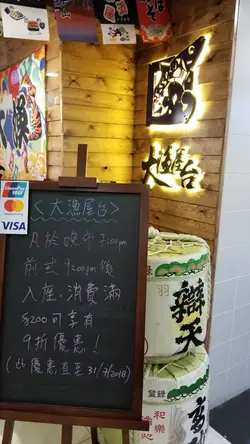 大漁屋台
UnionPay
VISA
<大漁屋台>
凡於晚市7:00pm
前或9:00pm後
入座,消費滿
$200可享有
9折優惠!
(此優惠直至31/7/2018)
羽
辯天
登録
和樂